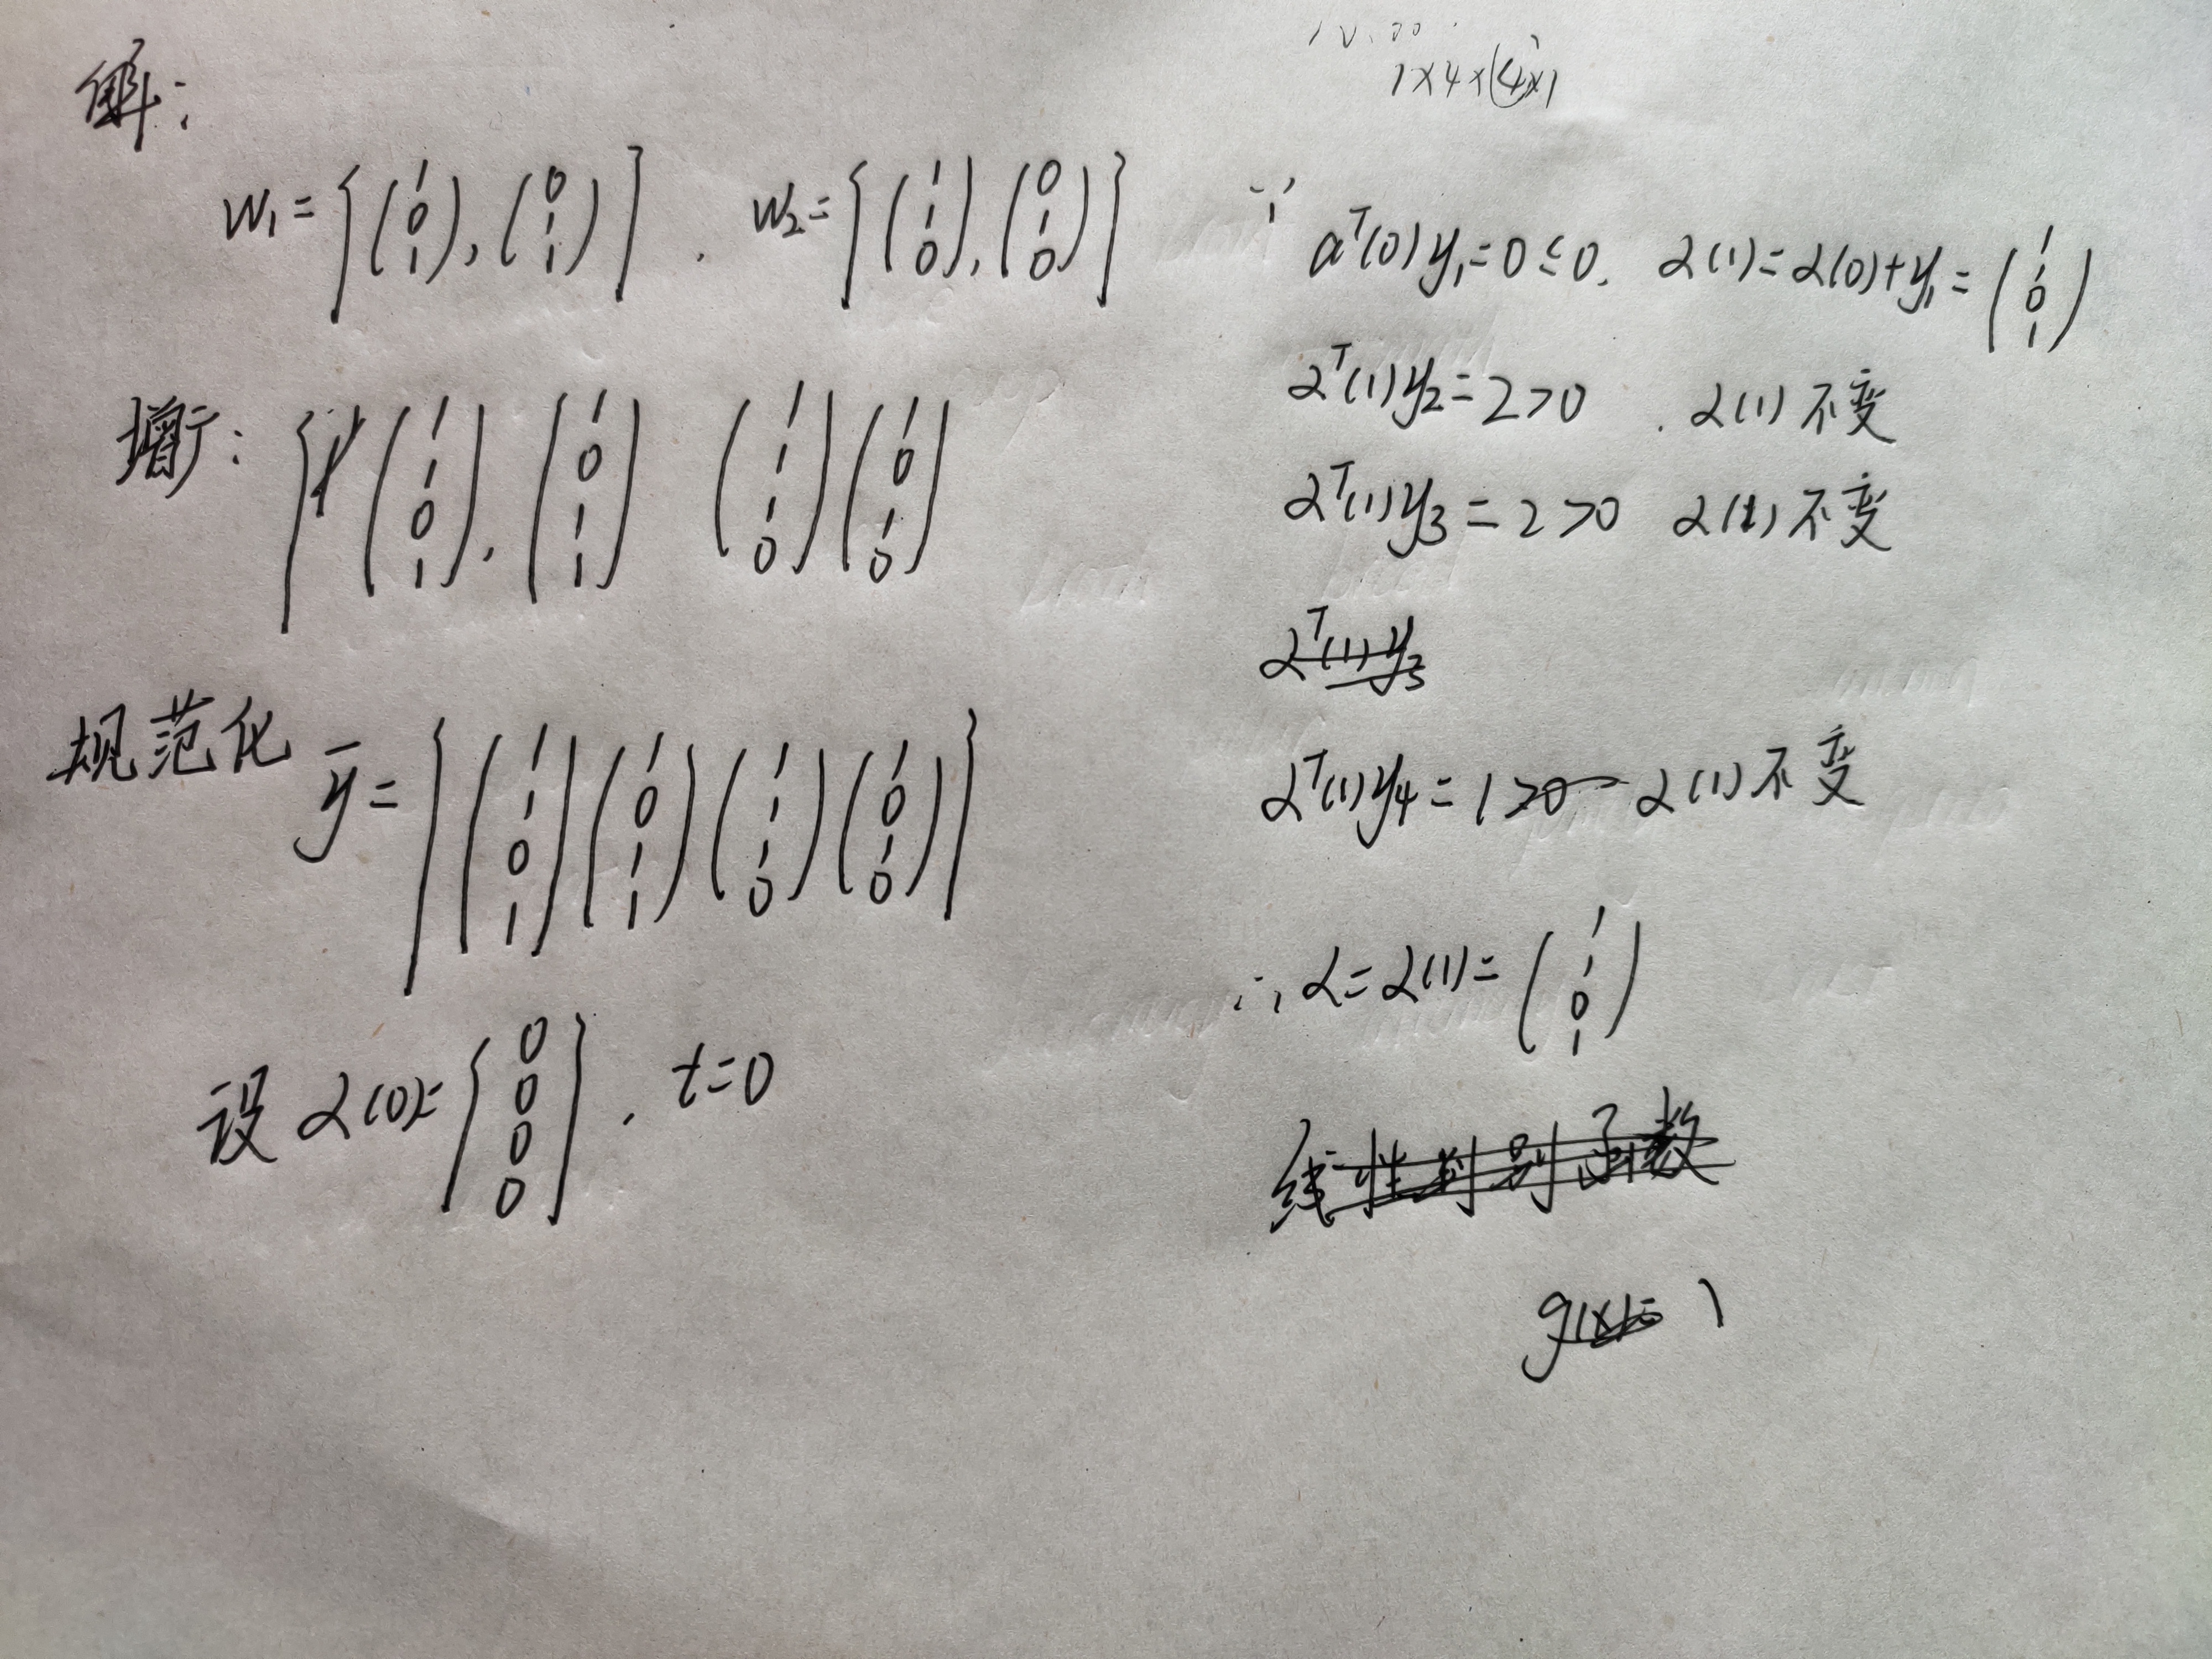 解:
w₁={(1 0 1),(0 1 1)}. w₂={(1 1 0),(0 1 0)}
增广: {(1 1 0 1),(1 0 1 1) (1 1 1 0)(1 0 1 0)
规范化 ȳ={(1 1 0 1)(1 0 1 1)(1 1 1 0)(1 0 1 0)}
设 α(0)={0 0 0 0}. t=0
1×4×(4×1
∵ aᵀ(0)y₁=0≤0. α(1)=α(0)+y₁=(1 1 0 1)
αᵀ(1)y₂=2>0. α(1)不变
αᵀ(1)y₃=2>0 α(1)不变
αᵀ(1)y₃
αᵀ(1)y₄=1>0 α(1)不变
∴ α=α(1)=(1 1 0 1)
线性判别函数
g(x)=